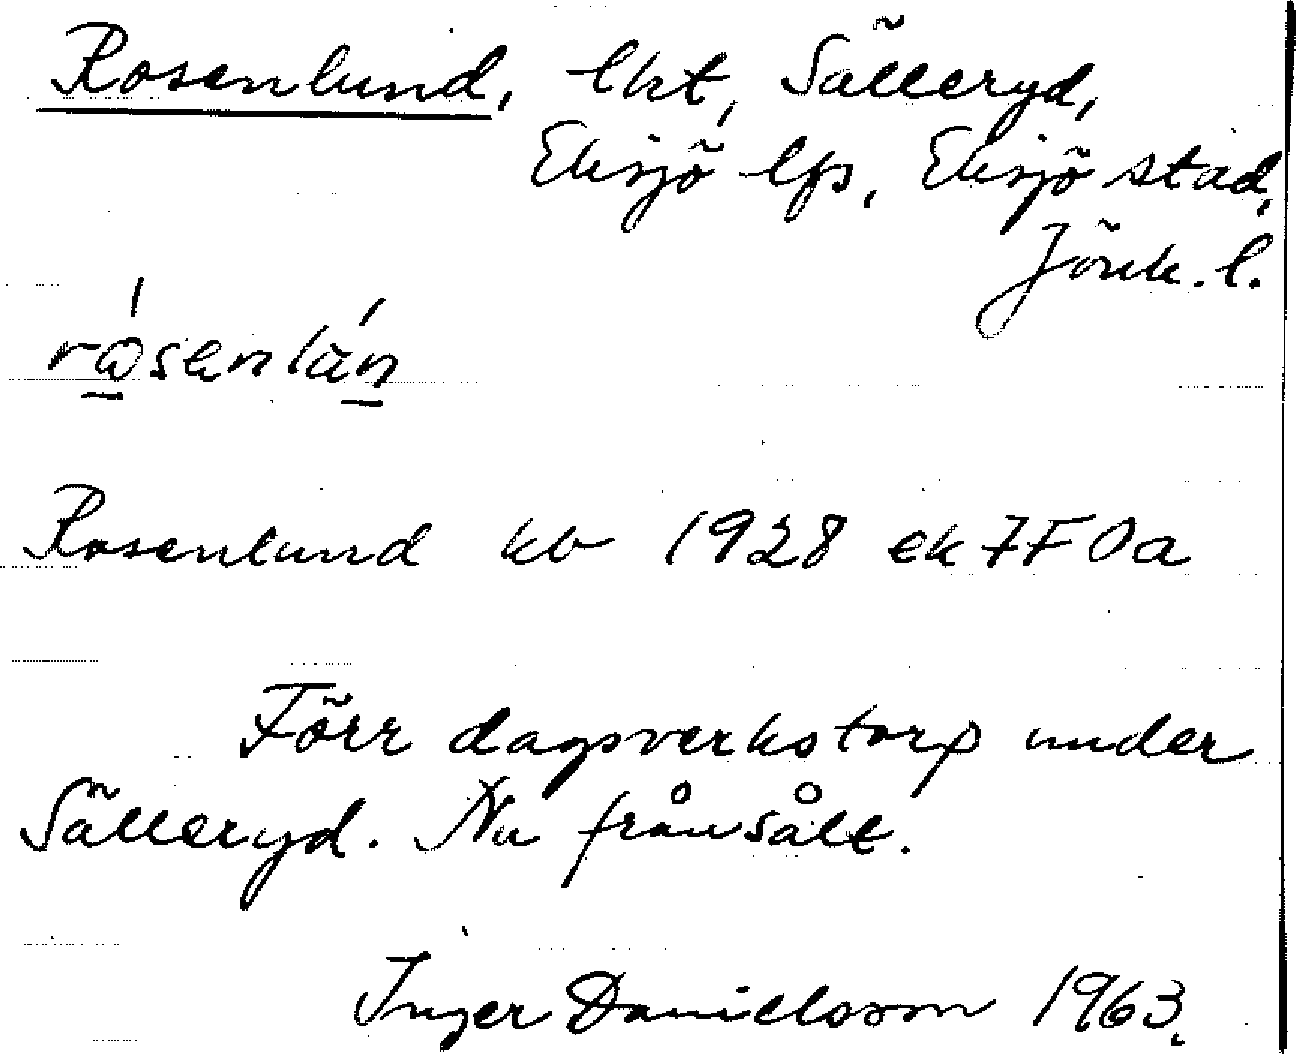 Rosenlund, lht, Sälleryd,
Eksjö lfs, Eksjö stad,
Jönk. l.
rosenlun
Rosenlund kb 1928 ek 7F0a
Förr dagsverkstorp under
Sälleryd. Nu frånsålt.
Inger Danielsson 1963.